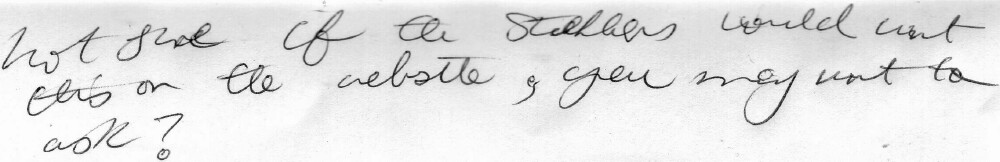 Not sure if the would want
this on the website, you may want to
ask?